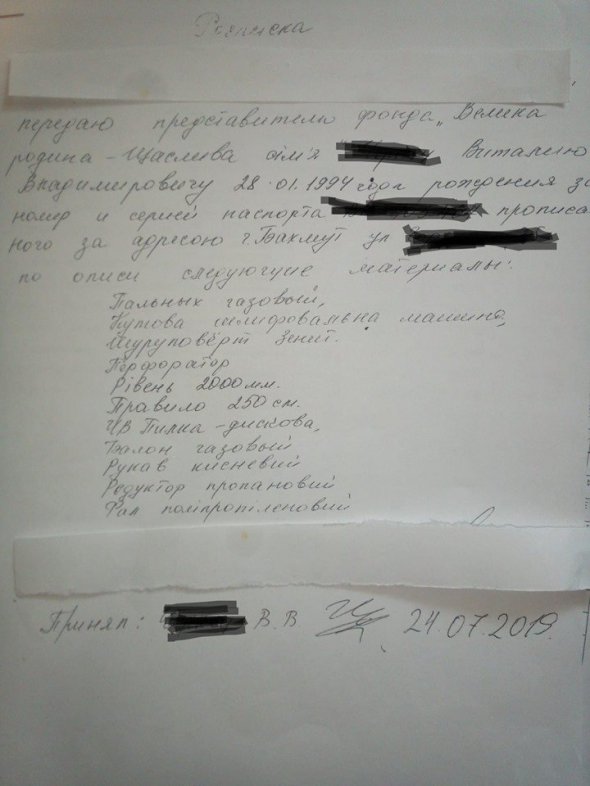 Расписка
передаю представителю фонда „Велика
родина - Щаслива сім'я Виталию
Владимировичу 28.01.1994 года рождения за
номер и серией паспорта прописа
ного за адресою г. Бахмут ул
по описи следующие материалы:
Пальнык газовый,
Кутова шлифовальна машина,
Шуруповёрт Зенит.
Перфоратор
Рівень 2000мм.
Правило 250 см.
Пилка - дискова,
Балон газовый
Рукав кисневий
Редуктор пропановий
Фал поліпропіленовий
Принял: В.В. 24.07.2019.